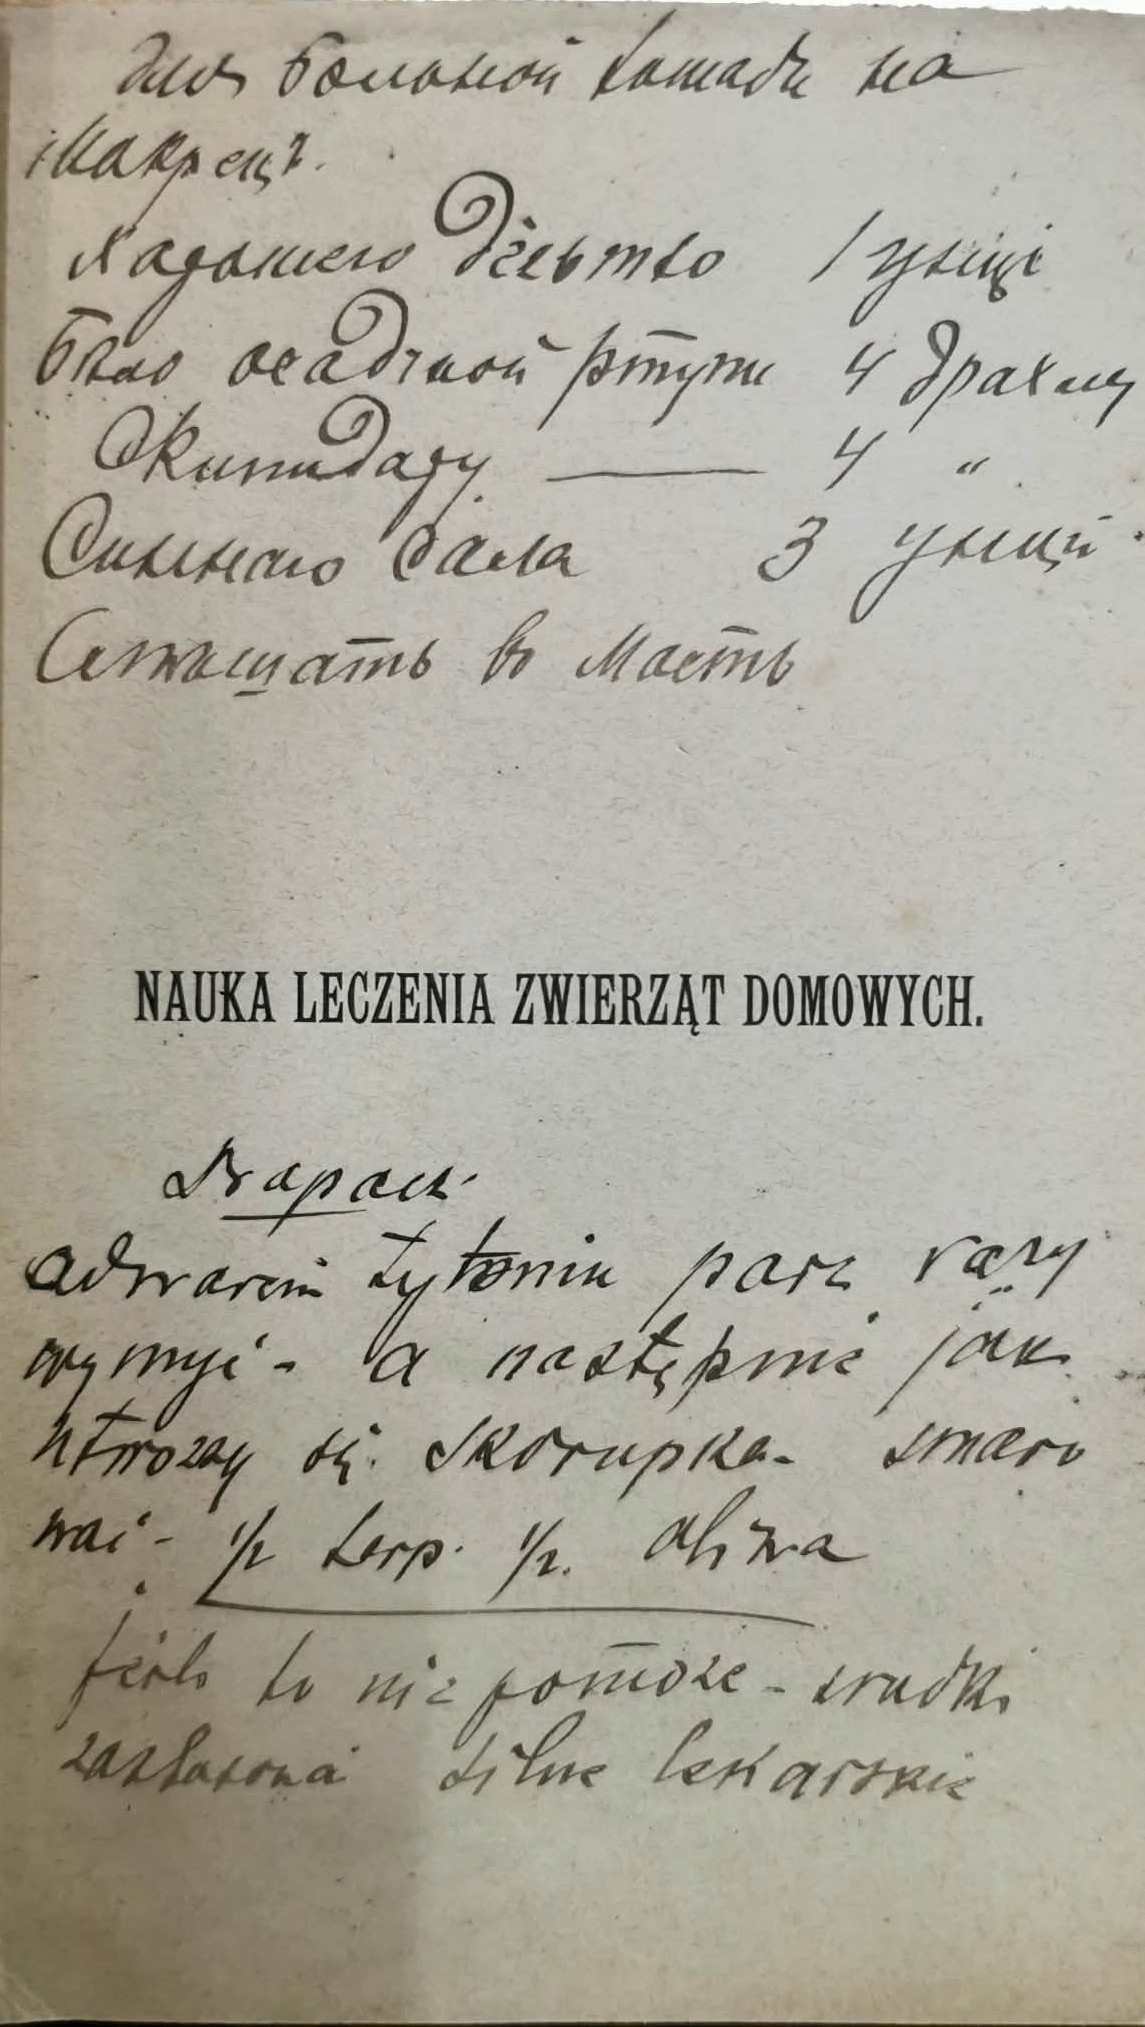 для больной лошади на
Мокрец?.
дёгтю 1 унція
бело осадочной ртути 4 драхмы
Скипидару — 4 "
Свинного сала 3 унцій
Смешать во Масть
NAUKA LECZENIA ZWIERZĄT DOMOWYCH.
Drapacz
odwarem tytoniu parę razy
wymyć - a następnie jak
utworzy się skorupka - smaro
wać - 1/2 terp. 1/2. oliwa
jeśli to nie pomoże - środki
zastosować silne lekarskie